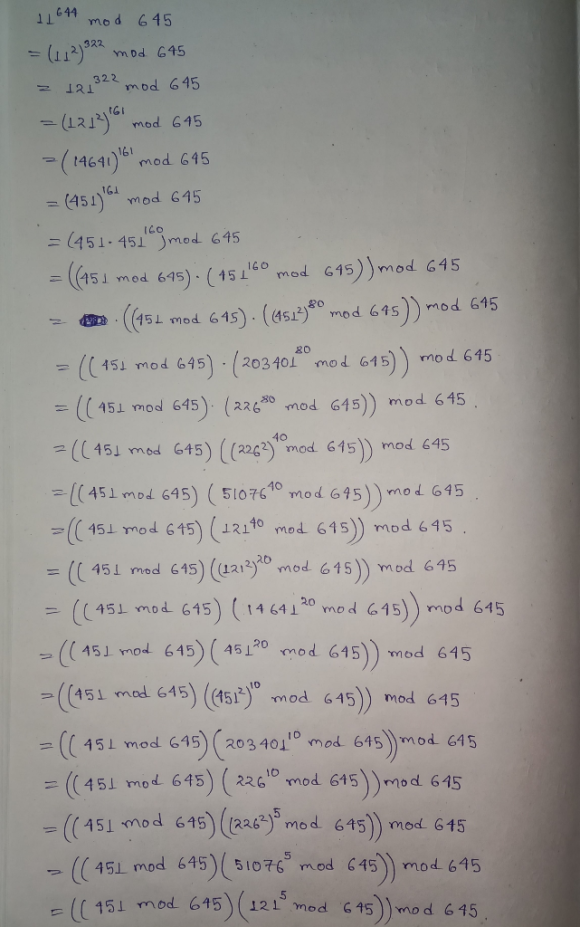 11^644 mod 645
= (11^2)^322 mod 645
= 121^322 mod 645
= (121^2)^161 mod 645
= (14641)^161 mod 645
= (451)^161 mod 645
= (451 · 451^160) mod 645
= ((451 mod 645) · (451^160 mod 645)) mod 645
= · ((451 mod 645) · ((451^2)^80 mod 645)) mod 645
= ((451 mod 645) · (203401^80 mod 645)) mod 645
= ((451 mod 645) · (226^80 mod 645)) mod 645.
= ((451 mod 645) ((226^2)^40 mod 645)) mod 645
= ((451 mod 645) (51076^40 mod 645)) mod 645.
= ((451 mod 645) (121^40 mod 645)) mod 645.
= ((451 mod 645) ((121^2)^20 mod 645)) mod 645
= ((451 mod 645) (14641^20 mod 645)) mod 645
= ((451 mod 645) (451^20 mod 645)) mod 645
= ((451 mod 645) ((451^2)^10 mod 645)) mod 645
= ((451 mod 645) (203401^10 mod 645)) mod 645
= ((451 mod 645) (226^10 mod 645)) mod 645
= ((451 mod 645) ((226^2)^5 mod 645)) mod 645
= ((451 mod 645) (51076^5 mod 645)) mod 645
= ((451 mod 645) (121^5 mod 645)) mod 645.